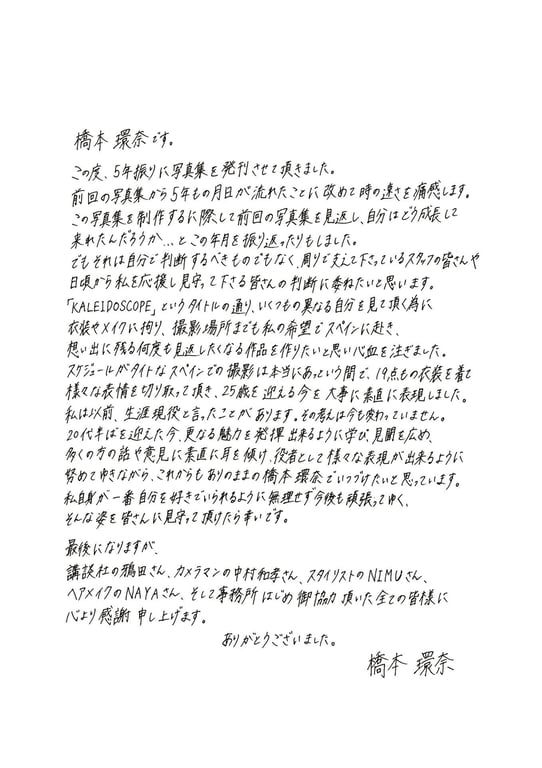 橋本 環奈です。
この度、5年振りに写真集を発刊させて頂きました。
前回の写真集から5年もの月日が流れたことに改めて時の速さを痛感します。
この写真集を制作するに際して前回の写真集を見返し、自分はどう成長して
来れたんだろうか…とこの年月を振り返ったりもしました。
でもそれは自分で判断するべきものでもなく、周りで支えて下さっているスタッフの皆さんや
日頃から私を応援し見守って下さる皆さんの判断に委ねたいと思います。
「KALEIDOSCOPE」というタイトルの通り、いくつもの異なる自分を見て頂く為に
衣装やメイクに拘り、撮影場所までも私の希望でスペインに赴き、
想い出に残る何度も見返したくなる作品を作りたいと思い心血を注ぎました。
スケジュールがタイトなスペインでの撮影は本当にあっという間で、19点もの衣装を着て
様々な表情を切り取って頂き、25歳を迎える今を大事に素直に表現しました。
私は以前、生涯現役と言ったことがあります。その考えは今も変わっていません。
20代半ばを迎えた今、更なる魅力を発揮出来るように学び、見聞を広め、
多くの方の話や意見に素直に耳を傾け、役者として様々な表現が出来るように
努めてゆきながら、これからもありのままの橋本環奈でいつづけたいと思っています。
私自身が一番自分を好きでいられるように無理せず今後も頑張ってゆく、
そんな姿を皆さんに見守って頂けたら幸いです。
最後になりますが、
講談社の鴉田さん、カメラマンの中村和孝さん、スタイリストのNIMUさん、
ヘアメイクのNAYAさん、そして事務所はじめ御協力頂いた全ての皆様に
心より感謝申し上げます。
ありがとうございました。
橋本 環奈